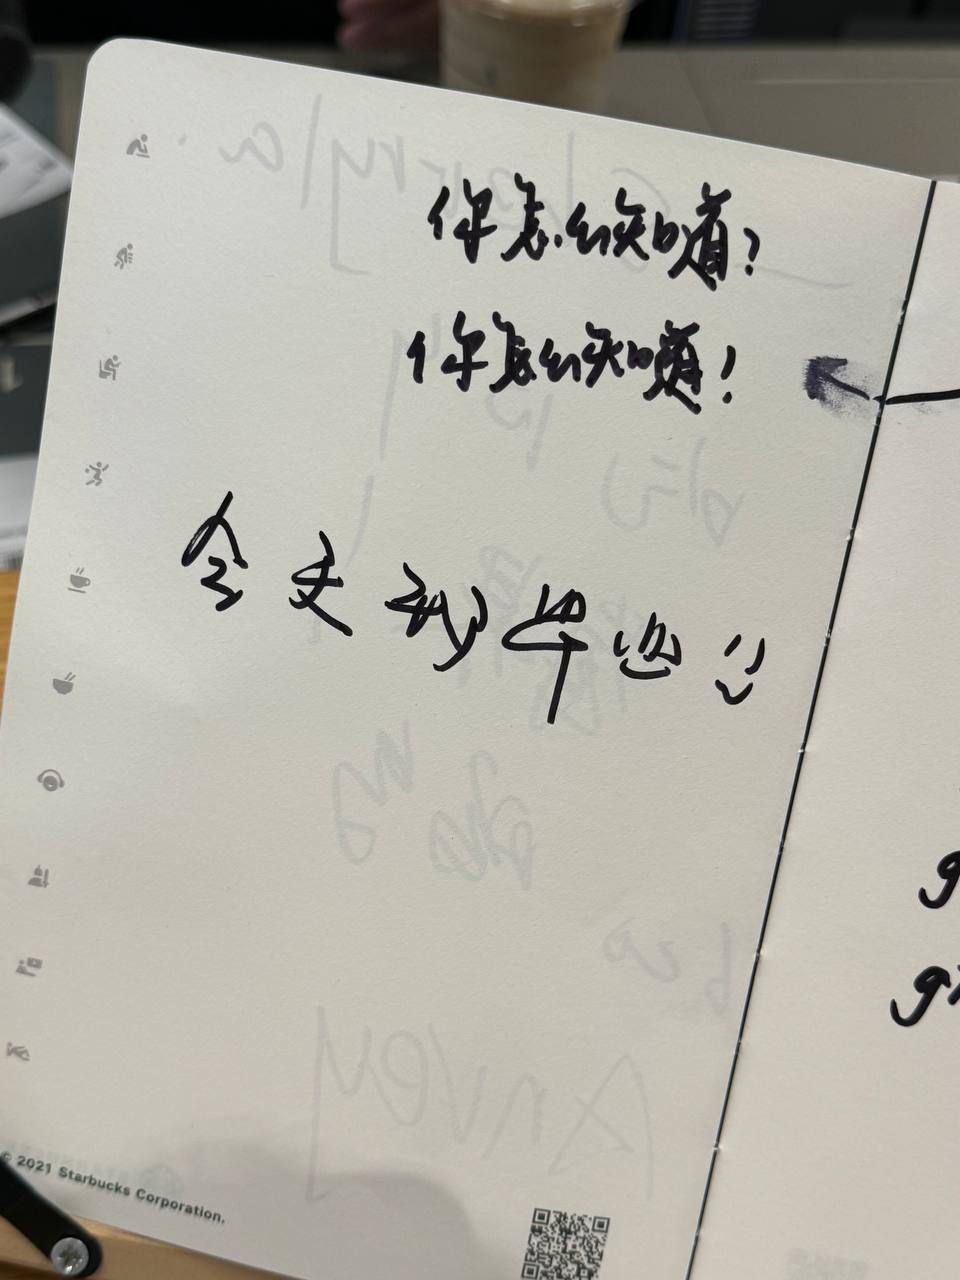 你怎么知道?
你怎么知道!
今天我毕业!!
© 2021 Starbucks Corporation.
g